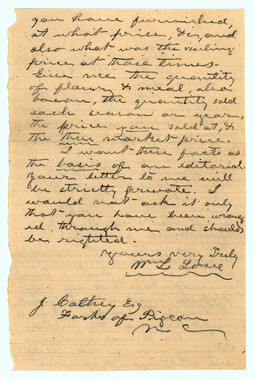 you have furnished,
at what price, &c, and
also what was the ruling
price at those times.
Give me the quantity
of flour, & meal, also
bacon, the quantity sold
each season or year,
the price you sold at, &
the then market price.
I want then facts as
the basis of an editorial.
Your letter to me will
be strictly private. I
would not ask it only
that you have been wrong
ed through me and should
be righted.
Yours very Truly
Wm L. Love
J Cathey Esq
Forks of Pigeon
N. C.